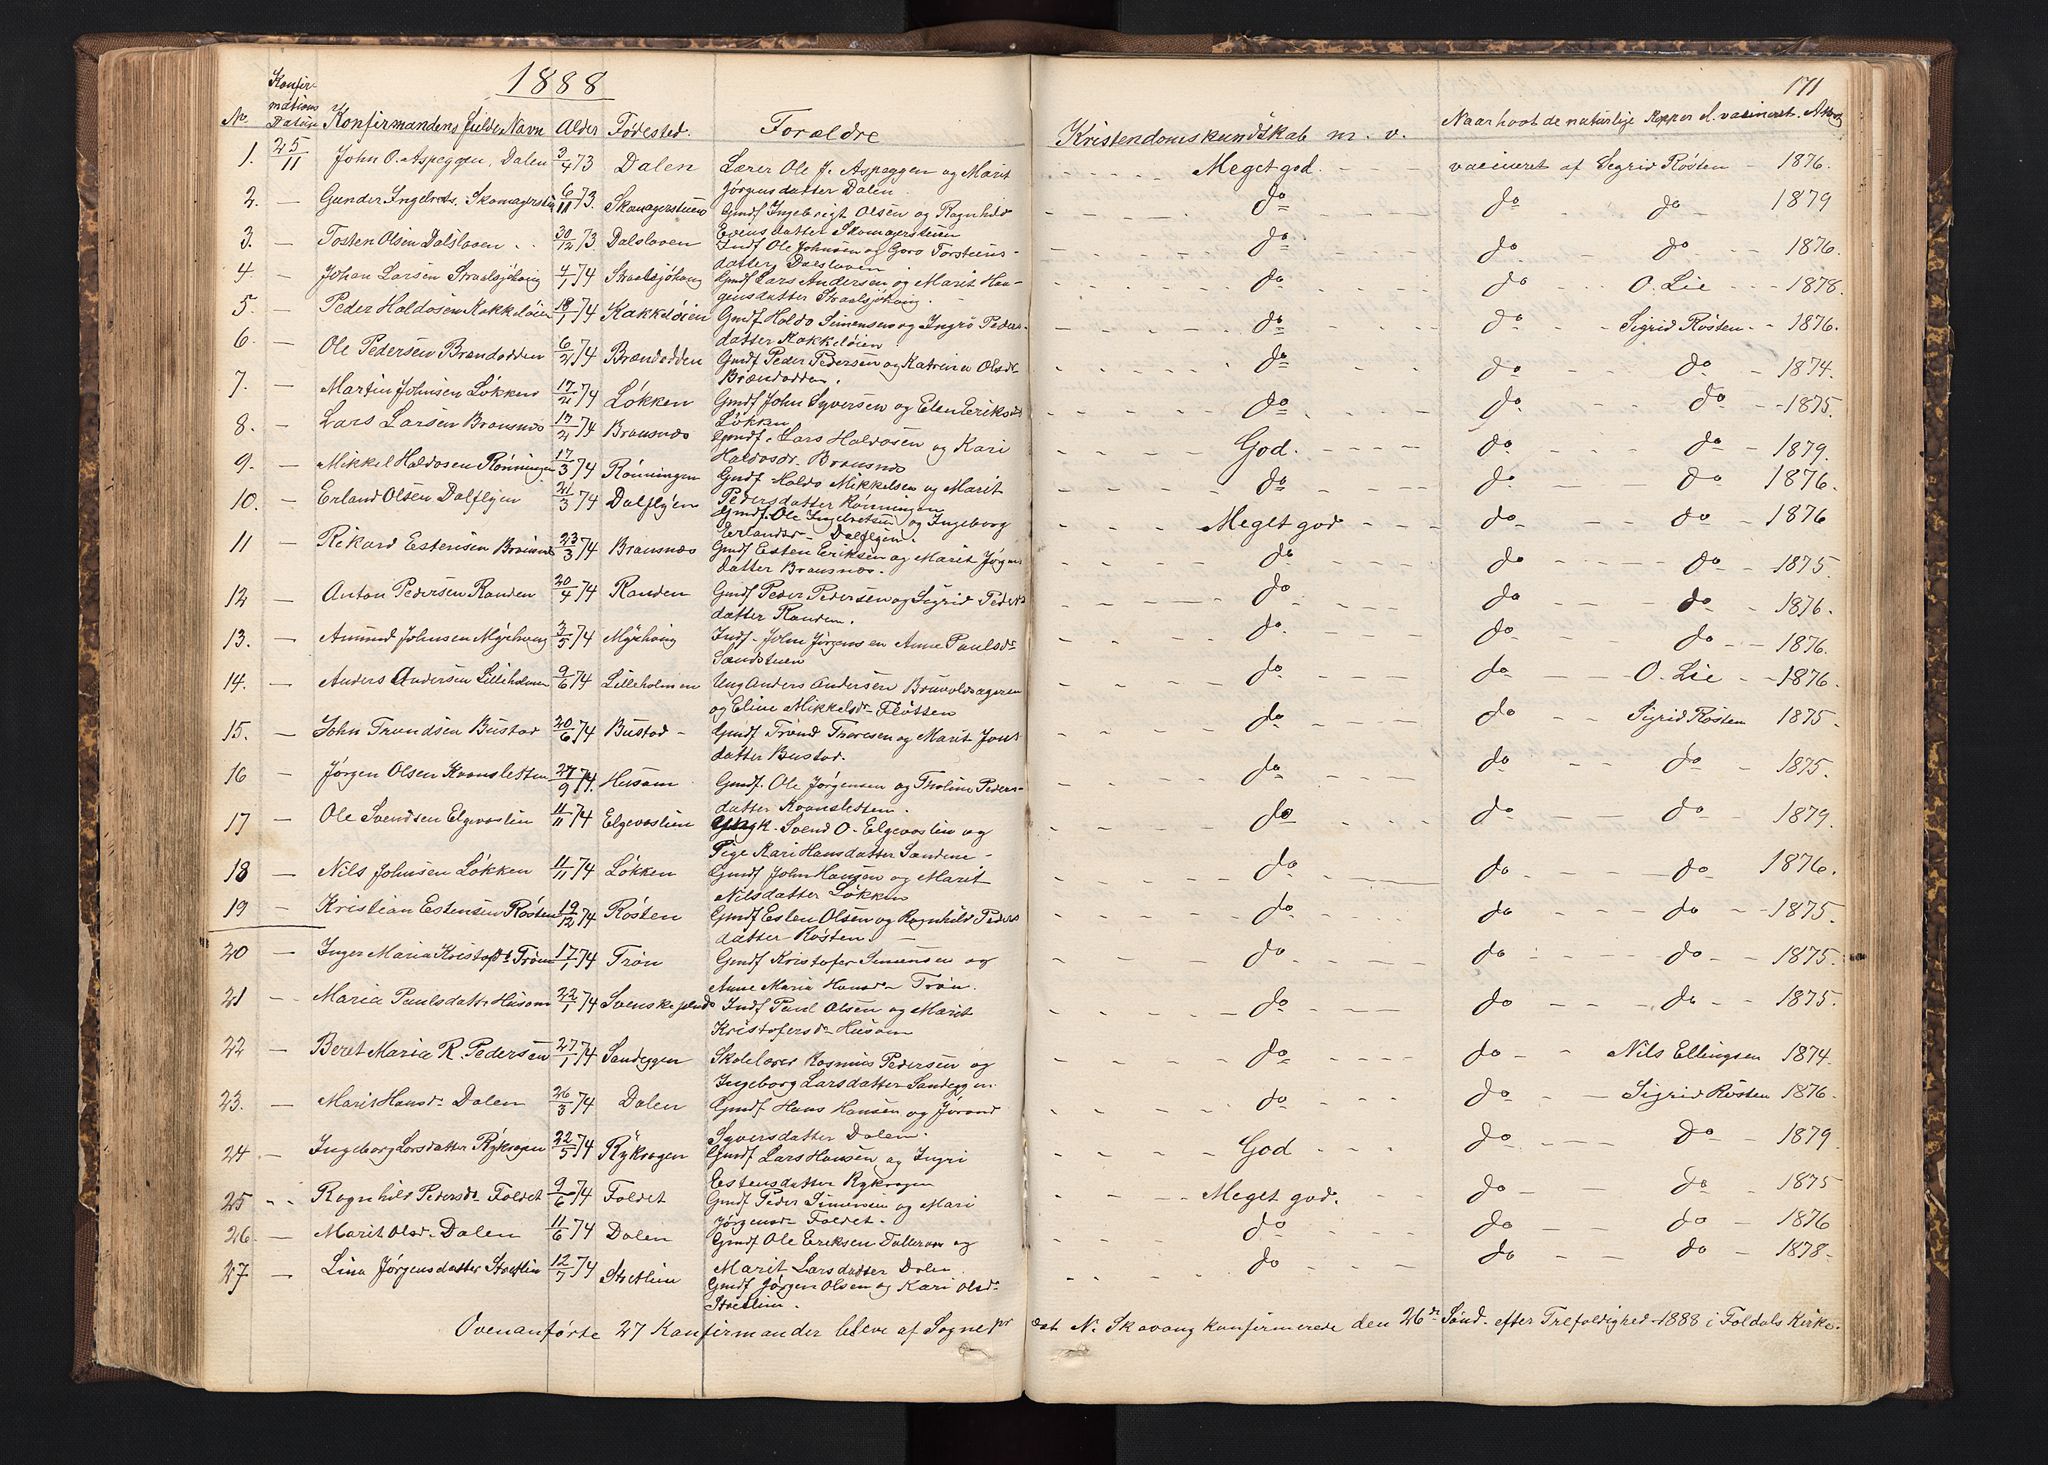 1888
171
No. Konfirmations Datum Konfirmandens fulde Navn Alder Fødested. Forældre Kristendomskundskab m. v. Naar havt de naturlige Kopper el. vacineret. Attest
1. 25/11 John O. Aspeggen, Dalen 3/4 73 Dalen Lærer Ole J. Aspeggen og Marit Meget god. vacineret af Sigrid Røsten - 1876.
Jørgensdatter Dalen.
2. — Gunder Ingebrets. Skomagerstuen 6/11 73. Skomagerstuen Gmdf Ingebrigt Olsen og Ragnhild do do do 1879
Evensdatter Skomagerstuen
3. — Tosten Olsen Dalsloven 30/12 73 Dalsloven Indf Ole Johnsen og Goro Torsteens- do do do 1876.
datter Dalsloven
4. — Johan Larsen Straalsjøhøig 4/1 74 Straalsjøhøig Gmdf Lars Andersen og Marit Hau- do do O. Lie 1878.
gensdatter Straalsjøhøig.
5. — Peder Haldosen Kakkeløien 18/1 74 Kakkeløien Gmdf Haldo Simensen og Ingrø Peders- do do Sigrid Røsten 1876.
datter Kakkeløien
6. Ole Pedersen Brændodden 6/2 74 Brændodden Gmdf Peder Pedersen og Katrina Olsdt do do do 1874.
Brændodden.
7. — Martin Johnsen Løkken 17/2 74 Løkken Gmdf John Syversen og Elen Eriksdt do do do 1875.
Løkken
8. — Lars Larsen Bransnæs 17/2 74 Bransnæs Gmdf. Lars Haldosen og Kari God. do do 1879.
Haldosdr. Bransnæs
9. — Mikkel Haldosen Rønningen 17/3 74 Rønningen Gmdf Haldo Mikkelsen og Marit do do do 1876.
Pedersdatter Rønningen
10. — Erland Olsen Dalflyen 21/3 74 Dalflyen Gmdf. Ole Ingebretsen og Ingeborg Meget god do do 1876
Erlandsdr. Dalflyen.
11 — Rikard Estensen Bransnæs 23/3 74 Bransnæs Gmdf Esten Eriksen og Marit Jørgens do do do 1875.
datter Bransnæs.
12 — Anton Pedersen Randen 20/4 74 Randen Gmdf Peder Pedersen og Sigrid Peders do do do 1876.
datter Randen.
13. — Amund Johnsen Myrhoug 3/5 74 Myrhoug Indf. John Jørgensen Anne Paulsdr do do do 1876.
Sandstuen
14. — Anders Andersen Lilleholmen 9/6 74 Lilleholmen Ung Anders Andersen Bruvoldsageren do do O. Lie 1876.
og Eline Mikkelsdr Fløtten
15. — John Trondsen Bustad 20/6 74 Bustad Gmdf Trond Thoresen og Marit Jons do do Sigrid Røsten 1875
datter Bustad.
16 — Jørgen Olsen Kvansletten 27/9 74. Husom Gmdf. Ole Jørgensen og Tholine Peders- do do do 1875.
datter Kvansletten.
17 — Ole Svendsen Elgevaslien 11/11 74 Elgevaslien Ungk. Svend O. Elgevaslien og do do do 1879.
Pige Kari Hansdatter Sandene
18 — Nils Johnsen Løkken 11/11 74 Løkken Gmdf John Hansen og Marit do do do 1876.
Nilsdatter Løkken
19 — Kristian Estensen Røsten 19/12 74 Røsten Gmdf Esten Olsen og Ragnhild Peders do do do 1875.
datter Røsten
20 — Inger Maria Kristofdt Trøen 17/1 74 Trøn Gmdf Kristofer Simensen og do do do 1875.
Anne Maria Hansdr Trøn.
21 — Maria Paulsdatter Husom 22/1 74 Svenskejordo Indf Paul Olsen og Marit do do do 1875.
Kristofersdr Husom
22 — Beret Maria R. Pedersen 27/1 74 Sandeggen Skolelærer Rasmus Pedersen og do do Nils Ellingsen 1874
Ingeborg Larsdatter Sandeggen.
23. — Marit Hansdr Dalen 26/3 74 Dalen Gmdf Hans Hansen og Jørand do do Sigrid Røsten 1876
Syversdatter Dalen.
24 — Ingeborg Larsdatter Rykrogen 22/5 74 Rykrogen Gmdf Lars Hansen og Ingri God do do 1879
Estensdatter Rykrogen
25 Ragnhild Pedersdr Foldet 9/6 74 Foldet Gmdf Peder Simensen og Mari Meget god. do do 1875
Jørgensdr Foldet.
26 — Marit Olsdr. Dalen 11/6 74 Dalen Gmdf Ole Eriksen og do do do 1876
Marit Larsdatter Dalen
27 — Lina Jørgensdatter Stretlien 12/7 74 Stretlien Gmdf Jørgen Olsen og Kari Olsdr. do do do 1878
Stretlien.
Ovenanførte 27 Konfirmander bleve af Sognepræst N. Skavang konfirmerede den 26de Sønd. efter Trefoldighed 1888 i Foldals Kirke.